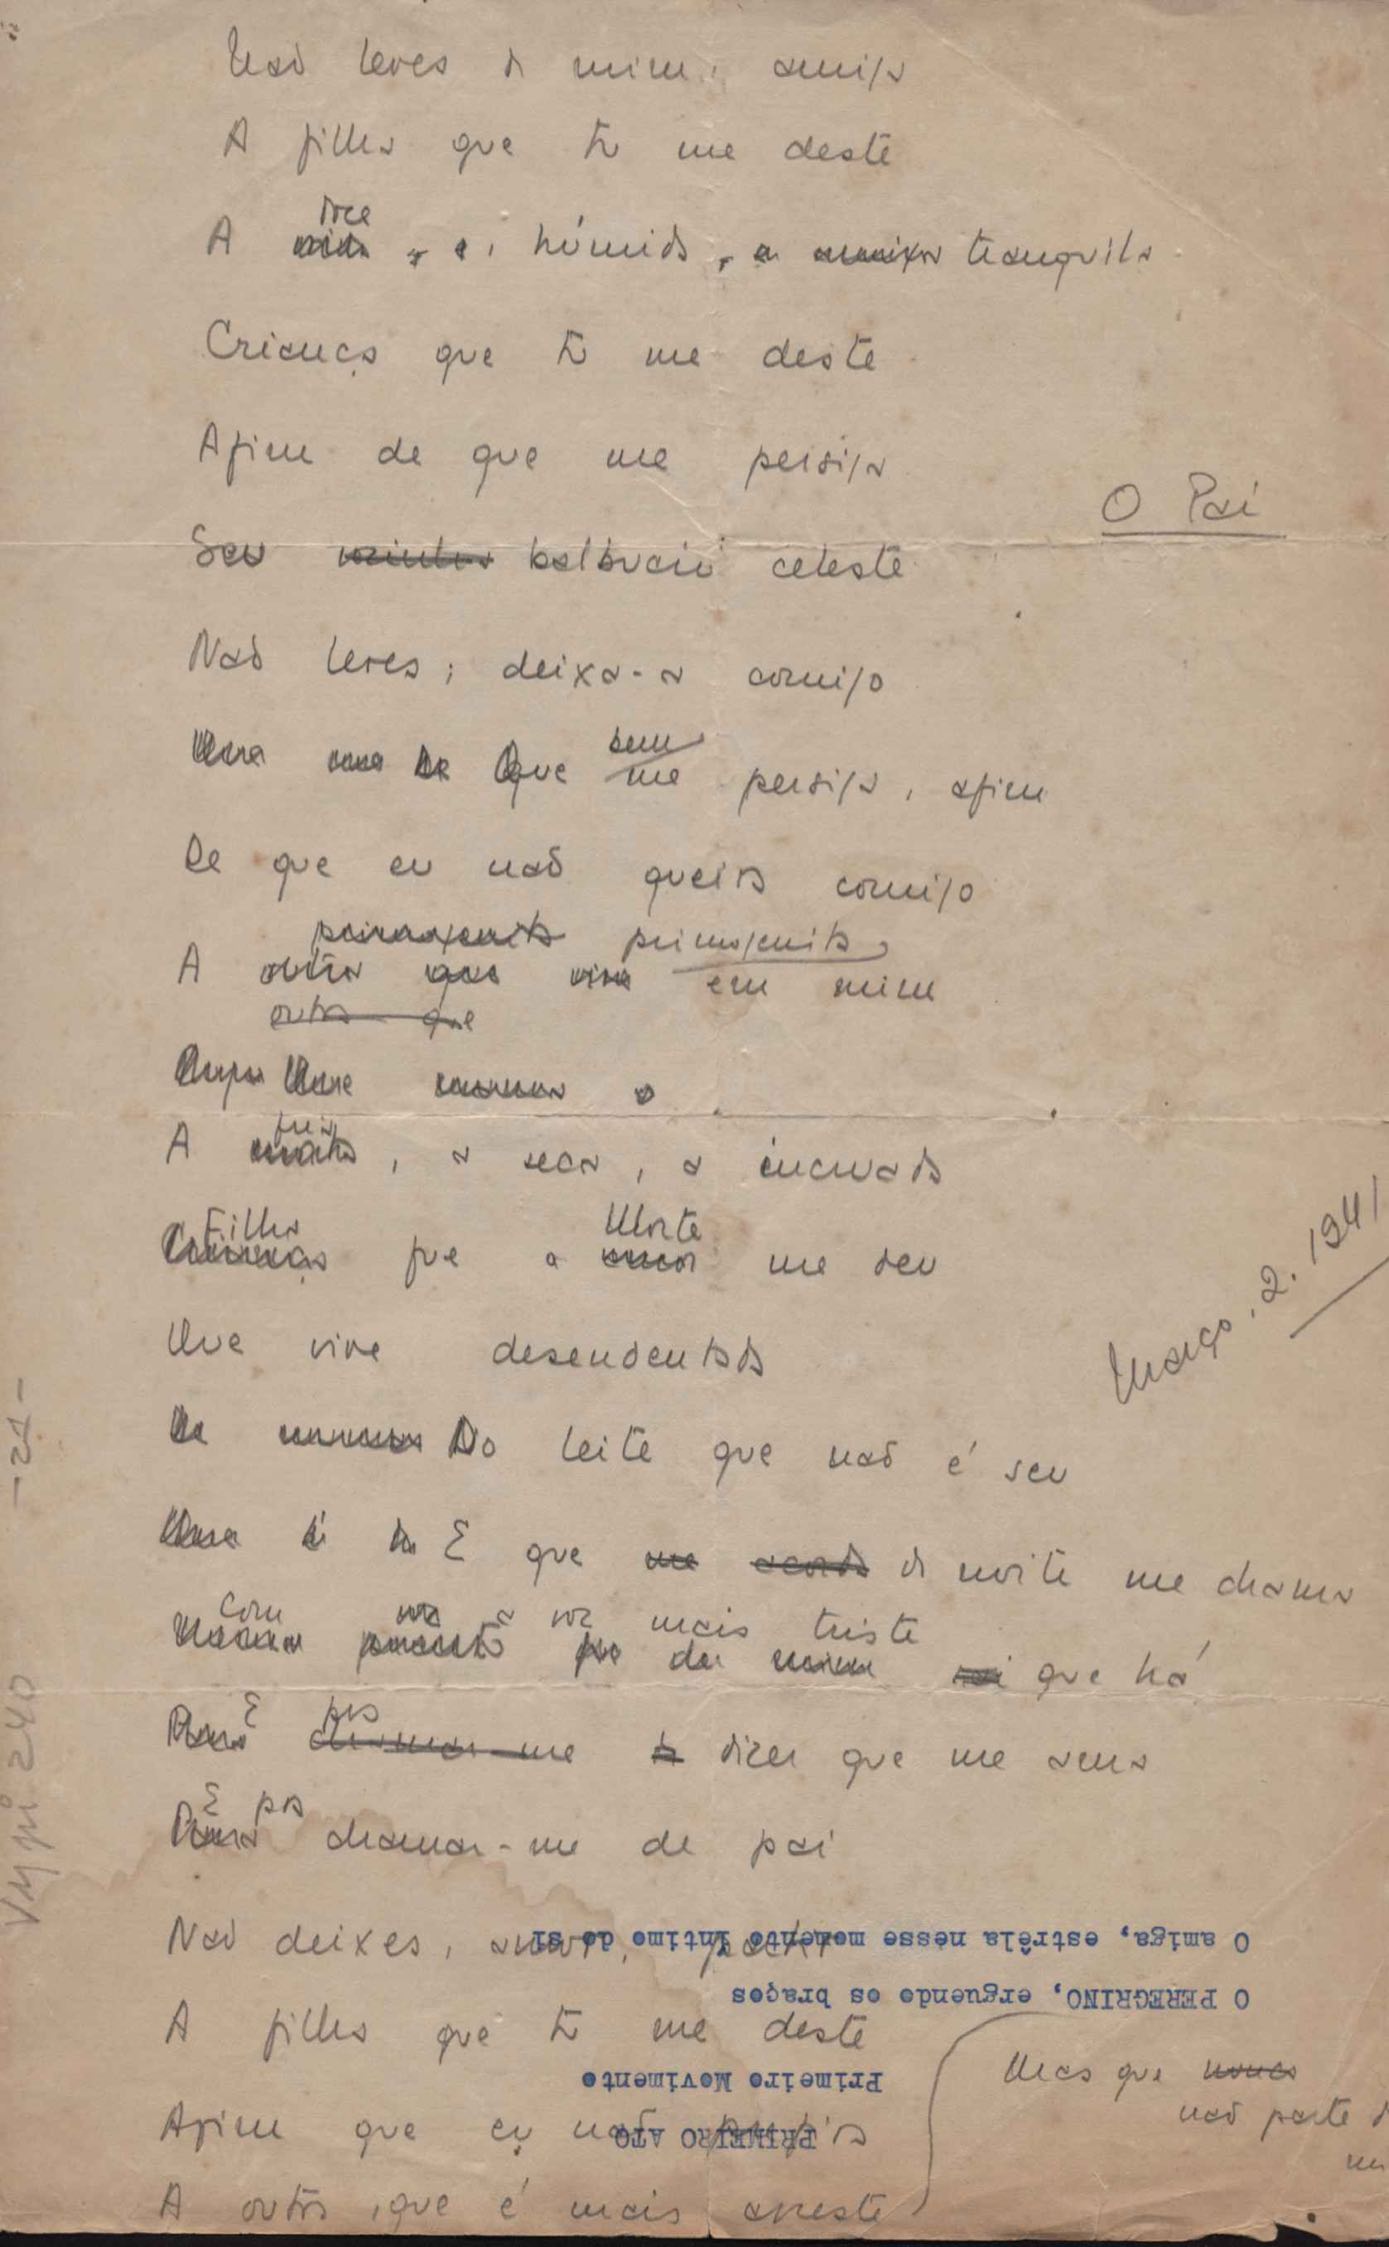 Não leves de mim, amiga
A filha que tu me deste
doce
A a, húmida, a tranquila
Criança que tu me deste
Afim de que me persiga
O Pai
Seu balbucio celeste
Não leves; deixa-a comigo
bem
Que me persiga, afim
De que eu não queira comigo
primogenita
A outra que vive em mim
outra que
fria
A, a seca, a encruada
Filha Morte
que a me deu
Que vive dessedentada
Março. 2. 1941
Do leite que não é seu
E que me acorda de noite me chama
com a voz mais triste
que há
E pra
chamar-me dizer que me ama
E pra
chamar-me de pai
Não deixes, amor,
A filha que tu me deste
Afim que eu não
A outra, que é mais agreste
Mas que nunca
não parte de
O amiga, estrêla nesse momento íntimo de si
O PEREGRINO, erguendo os braços
Primeiro Movimento
PRIMEIRO ATO
-21-
VM pi 240